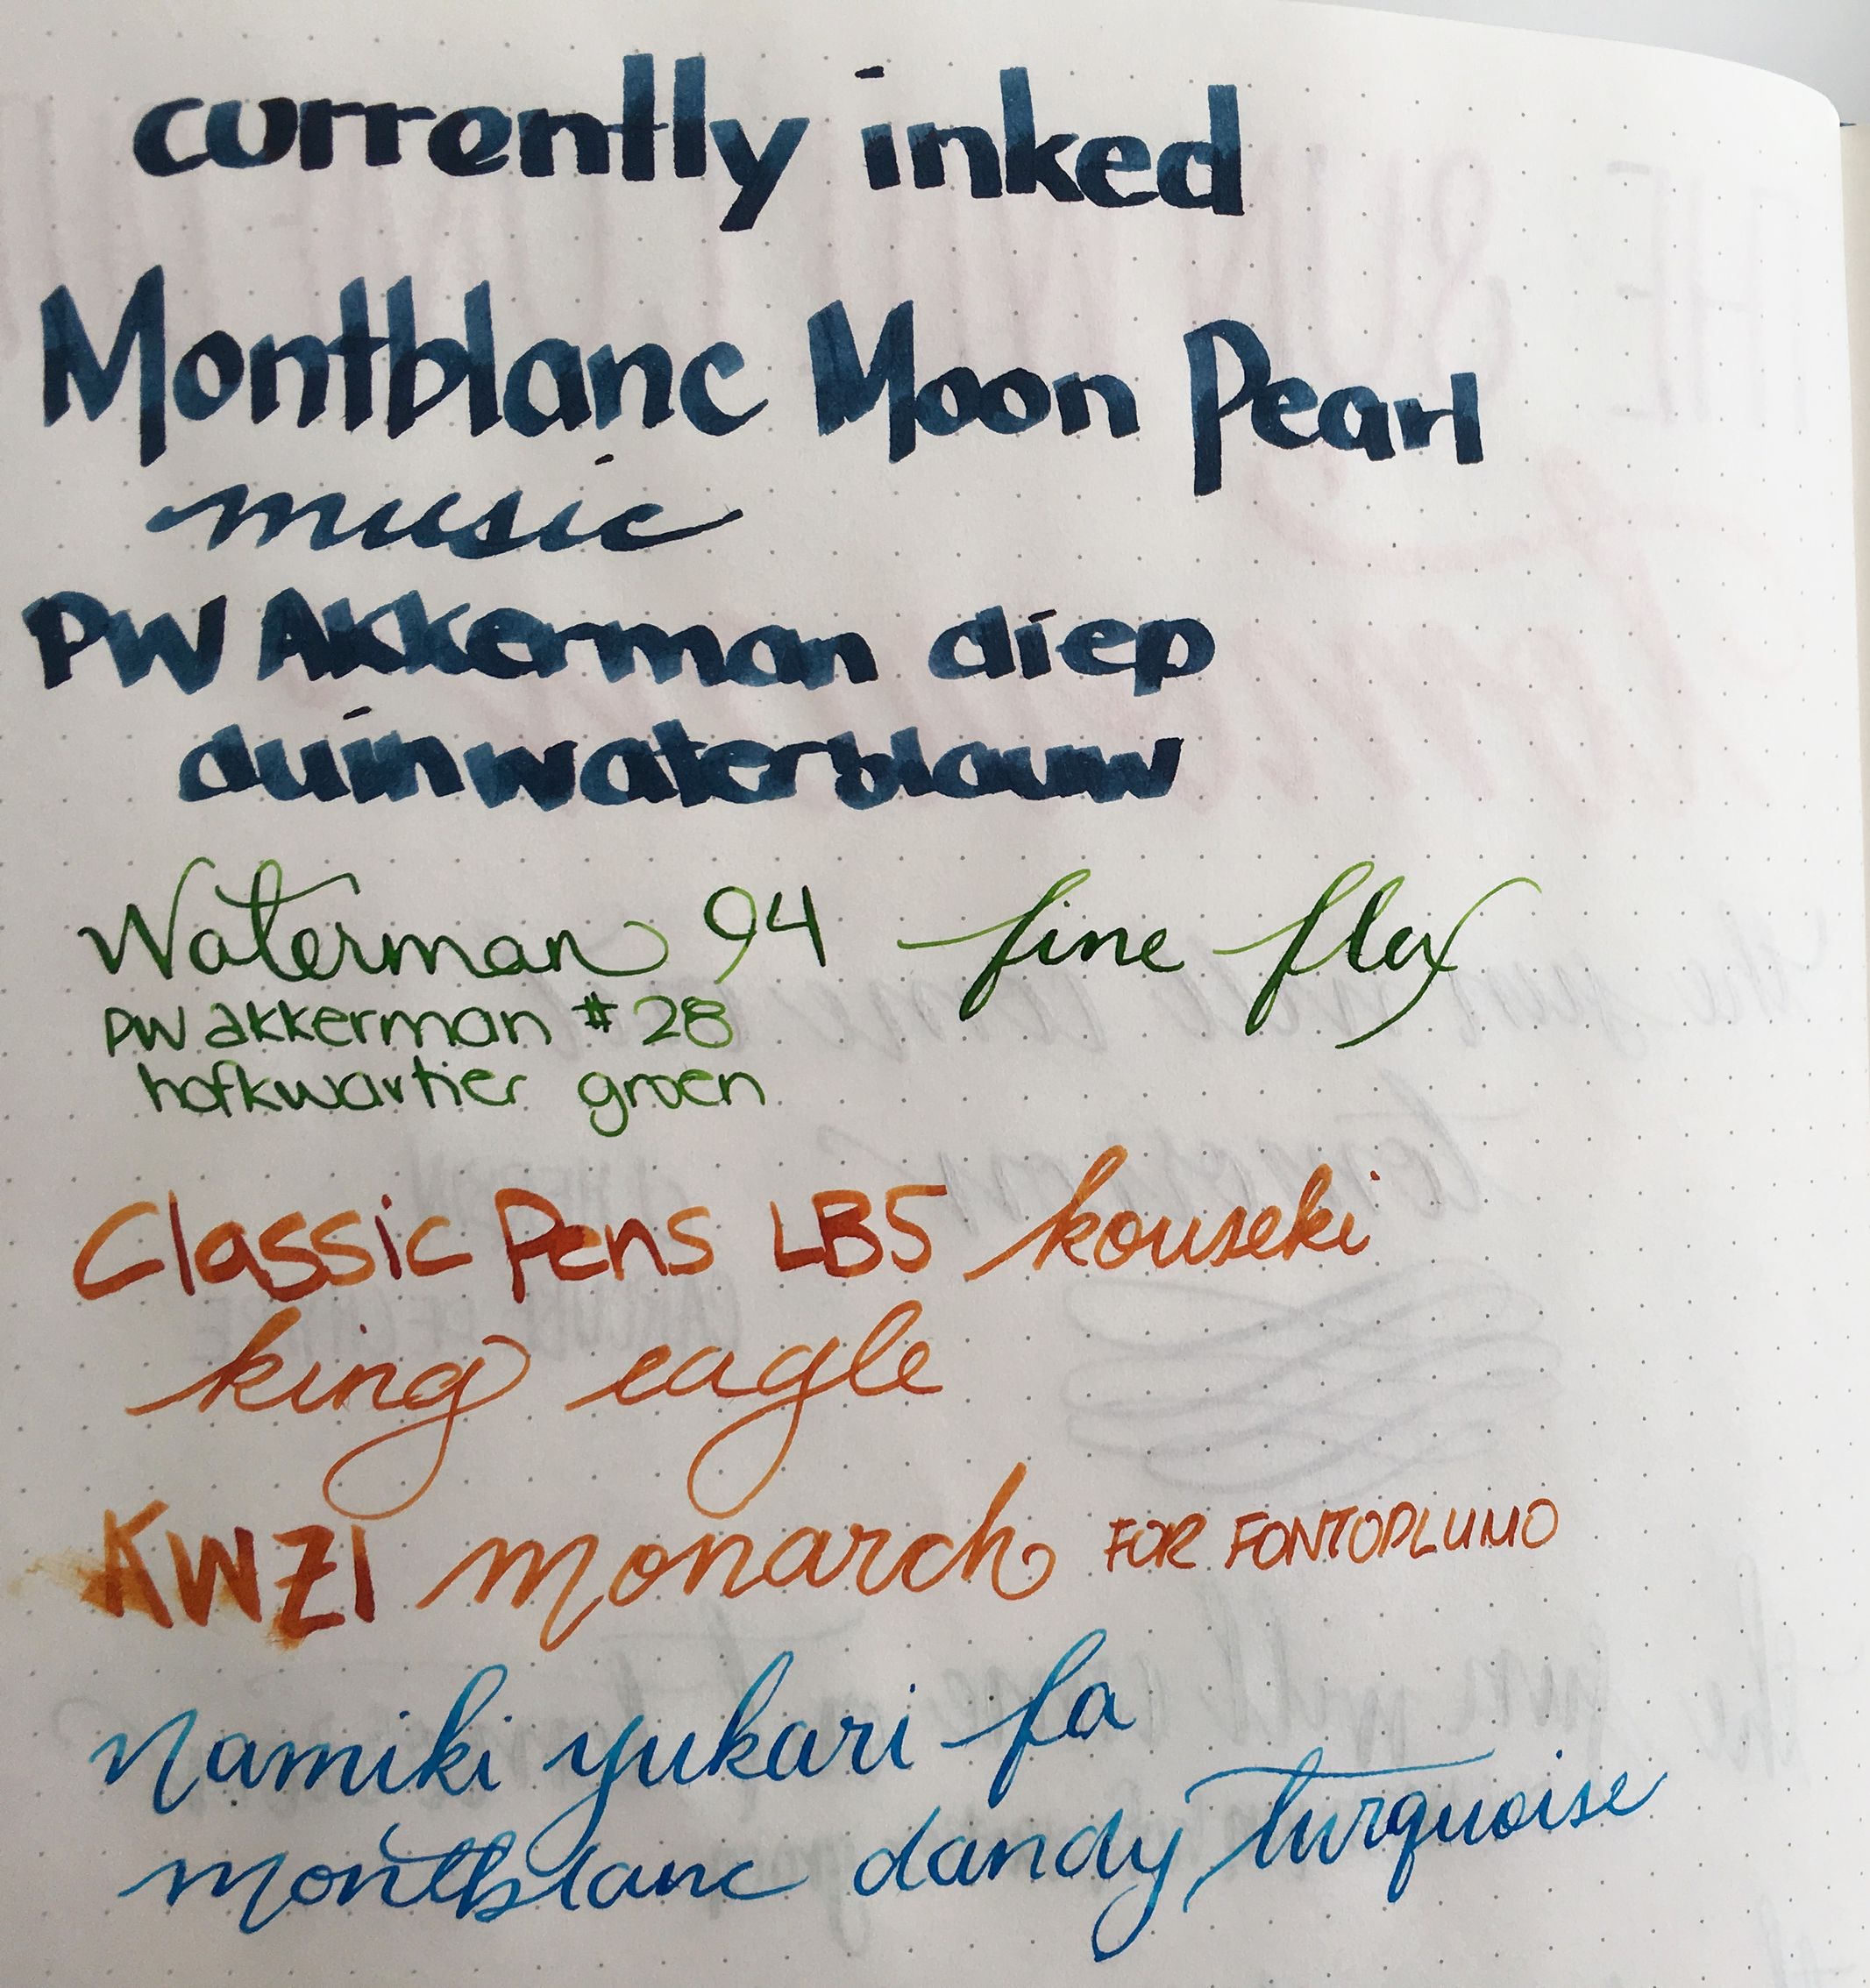 currently inked
Montblanc Moon Pearl
music
PW Akkerman diep
duinwaterblauw
Waterman 94 fine flex
pw akkerman #28
hofkwartier groen
Classic Pens LB5 kouseki
king eagle
KWZI monarch FOR FONTOPLUMO
Namiki yukari fa
montblanc dandy turquoise